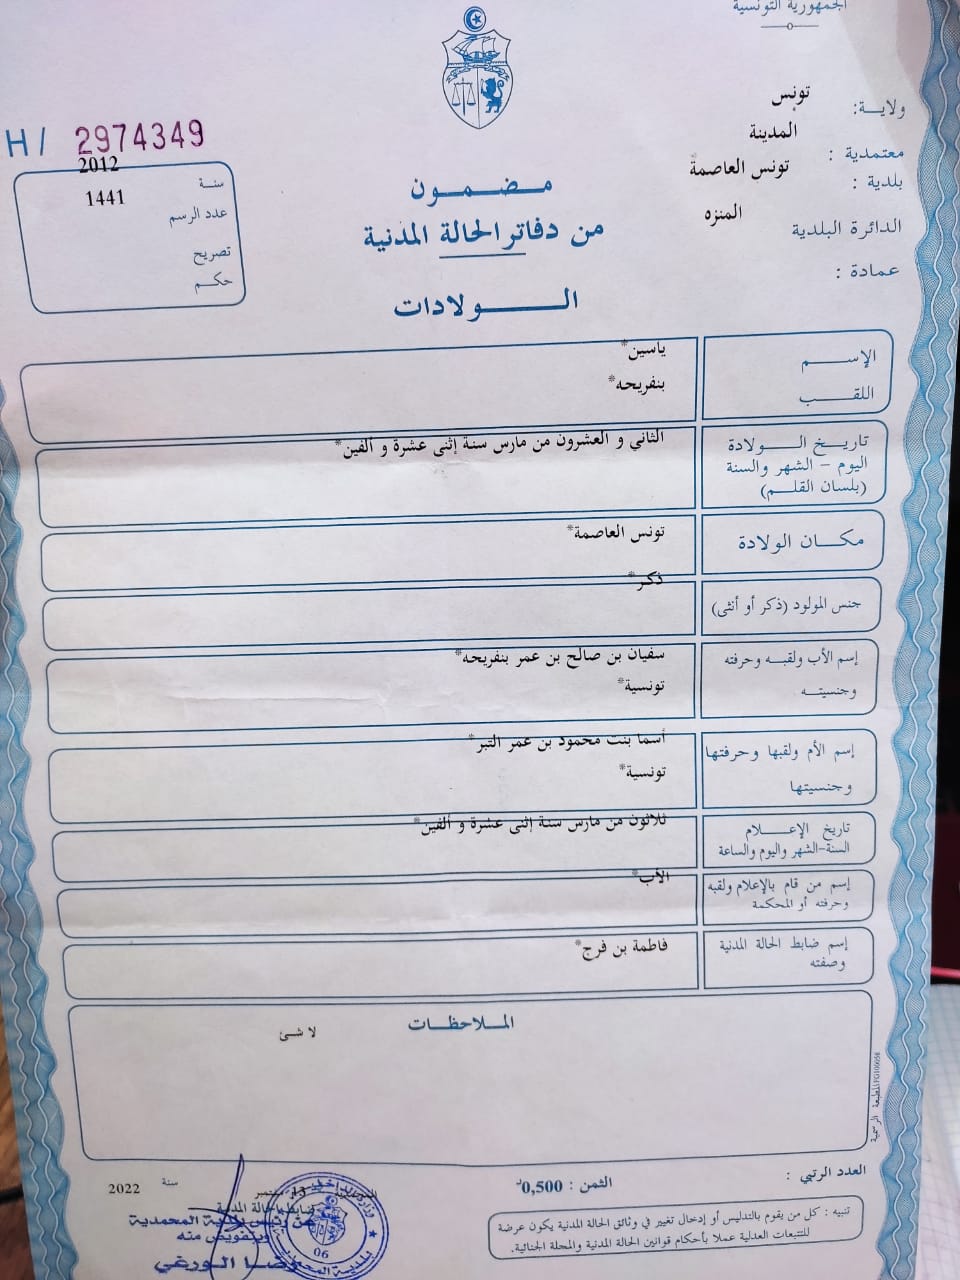 الجمهورية التونسية
ولاية: تونس
المدينة
معتمدية :
بلدية : تونس العاصمة
الدائرة البلدية المنزه
عمادة :
H/ 2974349
سنة 2012
عدد الرسم 1441
تصريح
حكم
مضمون
من دفاتر الحالة المدنية
الولادات
الإسم ياسين*
اللقب بنفريحه*
تاريخ الولادة الثاني و العشرون من مارس سنة إثنى عشرة و ألفين*
اليوم - الشهر والسنة
(بلسان القلم)
مكان الولادة تونس العاصمة*
جنس المولود (ذكر أو أنثى) ذكر*
إسم الأب ولقبه وحرفته سفيان بن صالح بن عمر بنفريحه*
وجنسيته تونسية*
إسم الأم ولقبها وحرفتها أسما بنت محمود بن عمر التبر*
وجنسيتها تونسية*
تاريخ الإعلام ثلاثون من مارس سنة إثنى عشرة و ألفين*
السنة-الشهر واليوم والساعة
إسم من قام بالإعلام ولقبه الأب*
وحرفته أو المحكمة
إسم ضابط الحالة المدنية فاطمة بن فرج*
وصفته
الملاحظات
لا شئ
المطبعة الرسمية FG100058
العدد الرتبي :
الثمن : 0,500د
تنبيه : كل من يقوم بالتدليس أو إدخال تغيير في وثائق الحالة المدنية يكون عرضة
للتتبعات العدلية عملا بأحكام قوانين الحالة المدنية والمجلة الجنائية.
13 سبتمبر سنة 2022
ضابط الحالة المدنية
عن رئيس بلدية المحمدية
وبتفويض منه
رضا الورغي
06